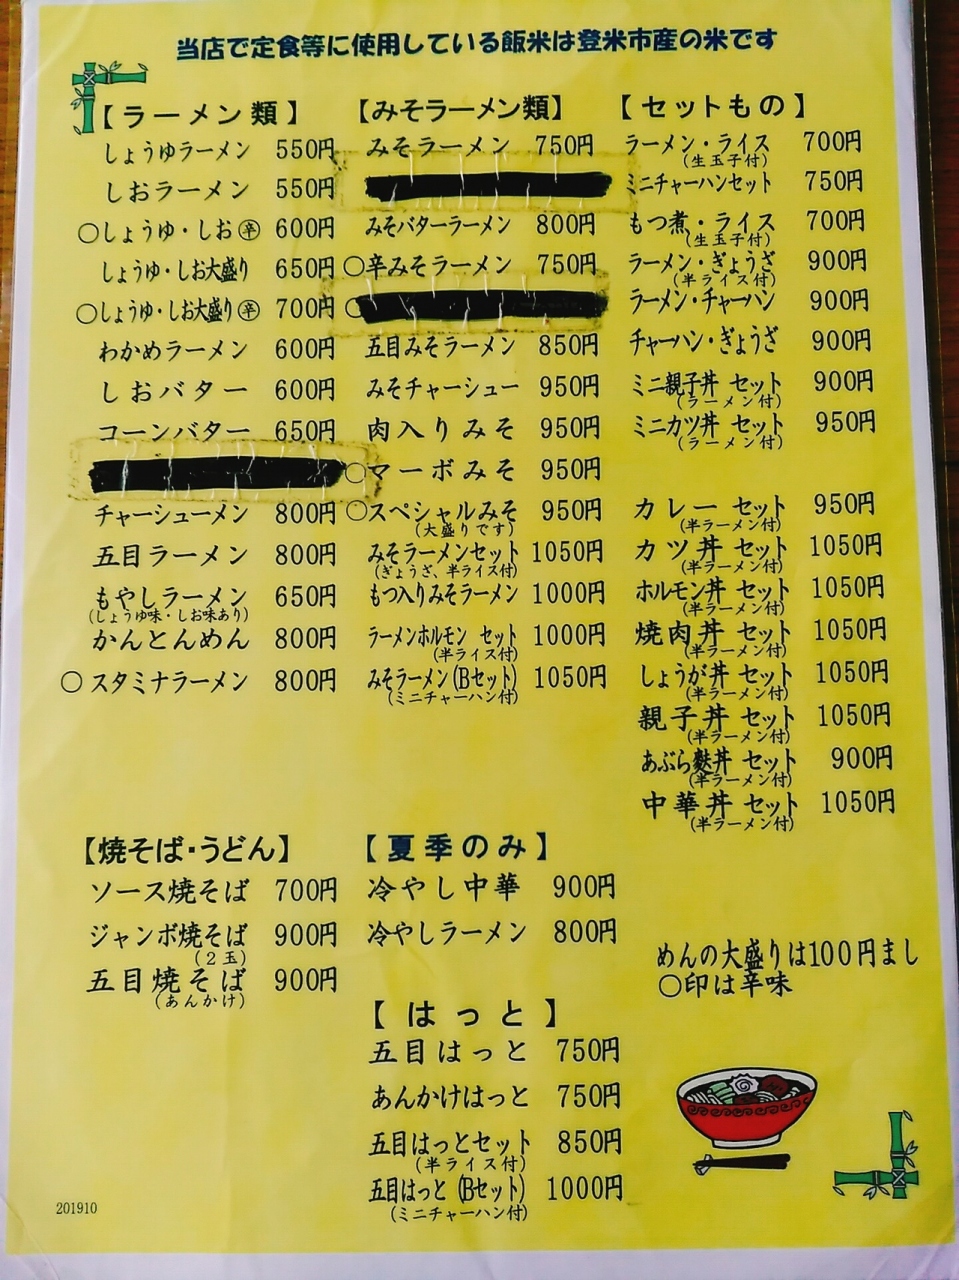 当店で定食等に使用している飯米は登米市産の米です
【ラーメン類】
しょうゆラーメン 550円
しおラーメン 550円
○しょうゆ・しお㊛ 600円
しょうゆ・しお大盛り 650円
○しょうゆ・しお大盛り(辛) 700円
わかめラーメン 600円
しおバター 600円
コーンバター 650円
チャーシューメン 800円
五目ラーメン 800円
もやしラーメン 650円
(しょうゆ味・しお味あり)
かんとんめん 800円
○スタミナラーメン 800円
【みそラーメン類】
みそラーメン 750円
みそバターラーメン 800円
○辛みそラーメン 750円
○
五目みそラーメン 850円
みそチャーシュー 950円
肉入りみそ 950円
○マーボみそ 950円
○スペシャルみそ 950円
(大盛りです)
みそラーメンセット 1050円
(ぎょうざ、半ライス付)
もつ入りみそラーメン 1000円
ラーメンホルモン セット 1000円
(半ライス付)
みそラーメン(Bセット) 1050円
(ミニチャーハン付)
【セットもの】
ラーメン・ライス 700円
(生玉子付)
ミニチャーハンセット 750円
もつ煮・ライス 700円
(生玉子付)
ラーメン・ぎょうざ 900円
(半ライス付)
ラーメン・チャーハン 900円
チャーハン・ぎょうざ 900円
ミニ親子丼 セット 900円
(ラーメン付)
ミニカツ丼 セット 950円
(ラーメン付)
カレー セット 950円
(半ラーメン付)
カツ丼 セット 1050円
(半ラーメン付)
ホルモン丼 セット 1050円
(半ラーメン付)
焼肉丼 セット 1050円
(半ラーメン付)
しょうが丼 セット 1050円
(半ラーメン付)
親子丼 セット 1050円
(半ラーメン付)
あぶら麩丼 セット 900円
(半ラーメン付)
中華丼 セット 1050円
(半ラーメン付)
【焼そば・うどん】
ソース焼そば 700円
ジャンボ焼そば 900円
(2玉)
五目焼そば 900円
(あんかけ)
【夏季のみ】
冷やし中華 900円
冷やしラーメン 800円
【はっと】
五目はっと 750円
あんかけはっと 750円
五目はっとセット 850円
(半ライス付)
五目はっと(Bセット) 1000円
(ミニチャーハン付)
めんの大盛りは100円まし
○印は辛味
201910